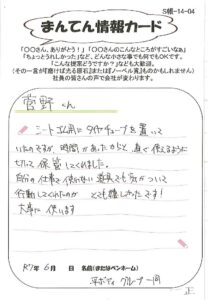 S帳-14-04
まんてん情報カード
「〇〇さん、ありがとう！」「〇〇さんのこんなところがすごいなぁ」
「ちょっとうれしかった」など、どんな小さな事でも何でもOKです。
「こんな提案どうですか？」なども大歓迎。
（その一言が磨けば光る原石！またはノーベル賞！ものかもしれません）
社員の皆さんの声で会社が変わります。
菅野くん
シート立用に タイヤチューブを 置いて
いたのですが、時間があったからと、直ぐ使えるように
切って 保管してくれました。
自分の仕事で使わない道具でも 気がついて
行動してくれたのが とても嬉しかったです！
大事に 使います
R7年 6月 日 名前（またはペンネーム）
平ボディグループ一同